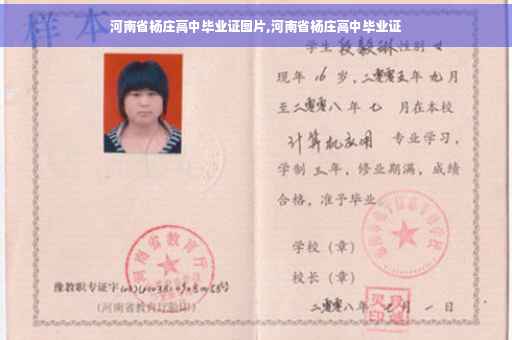 河南省杨庄高中毕业证图片,河南省杨庄高中毕业证
样本
学生 段毅琳 性别 女
现年 16 岁，二零零五年 九 月
至二零零八年 七 月在本校
计算机应用 专业学习，
学制 三 年，修业期满，成绩
合格，准予毕业。
学校（章）
校长（章）
二零零八年 七 月 一 日
河南省教育厅
豫教职专证字
(河南省教育厅验印)